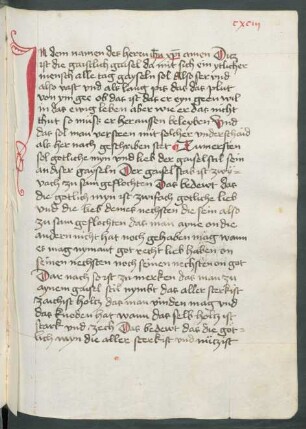 cxciii
In dem namen des herrn Jhu xpi amen Diz
ist die gaistlich gaisel da mit sich ein ytlicher
mensch alle tag gayseln sol Also ser vnd
also vast vnd als lang pis das das plut
von ym gee ob das ist das er eyn geen wil
in das ewig leben aber wie er das nicht
thut so muse er heraussen beleyben Vnd
das sol man versteen mit solcher vnderschaid
als her nach geschriben ster Czum ersten
sol gotliche myn vnd lieb der gaiselstil sein
an dyser gayseln Der gaiselstab ist zwy
vach zu sam geflochten Das bedewt das
die gotlich myn ist zwisch gotliche lieb
vnd die lieb demes nechsten die sein also
zu sam geflochten das man ayne on die
andern nicht hat noch gehaben mag wann
es mag nymant got recht lieb haben on
seinen nechsten noch seinen nechsten on got
Dar nach so ist zu merken das man zu
aynem gaisel stil nymbt das aller sterkist
zachist holtz das man vinden mag vnd
das knoden hat wann das selb holtz ist
stark vnd zech Das bedewt das die got
lich myn die aller sterkist vnd nützist